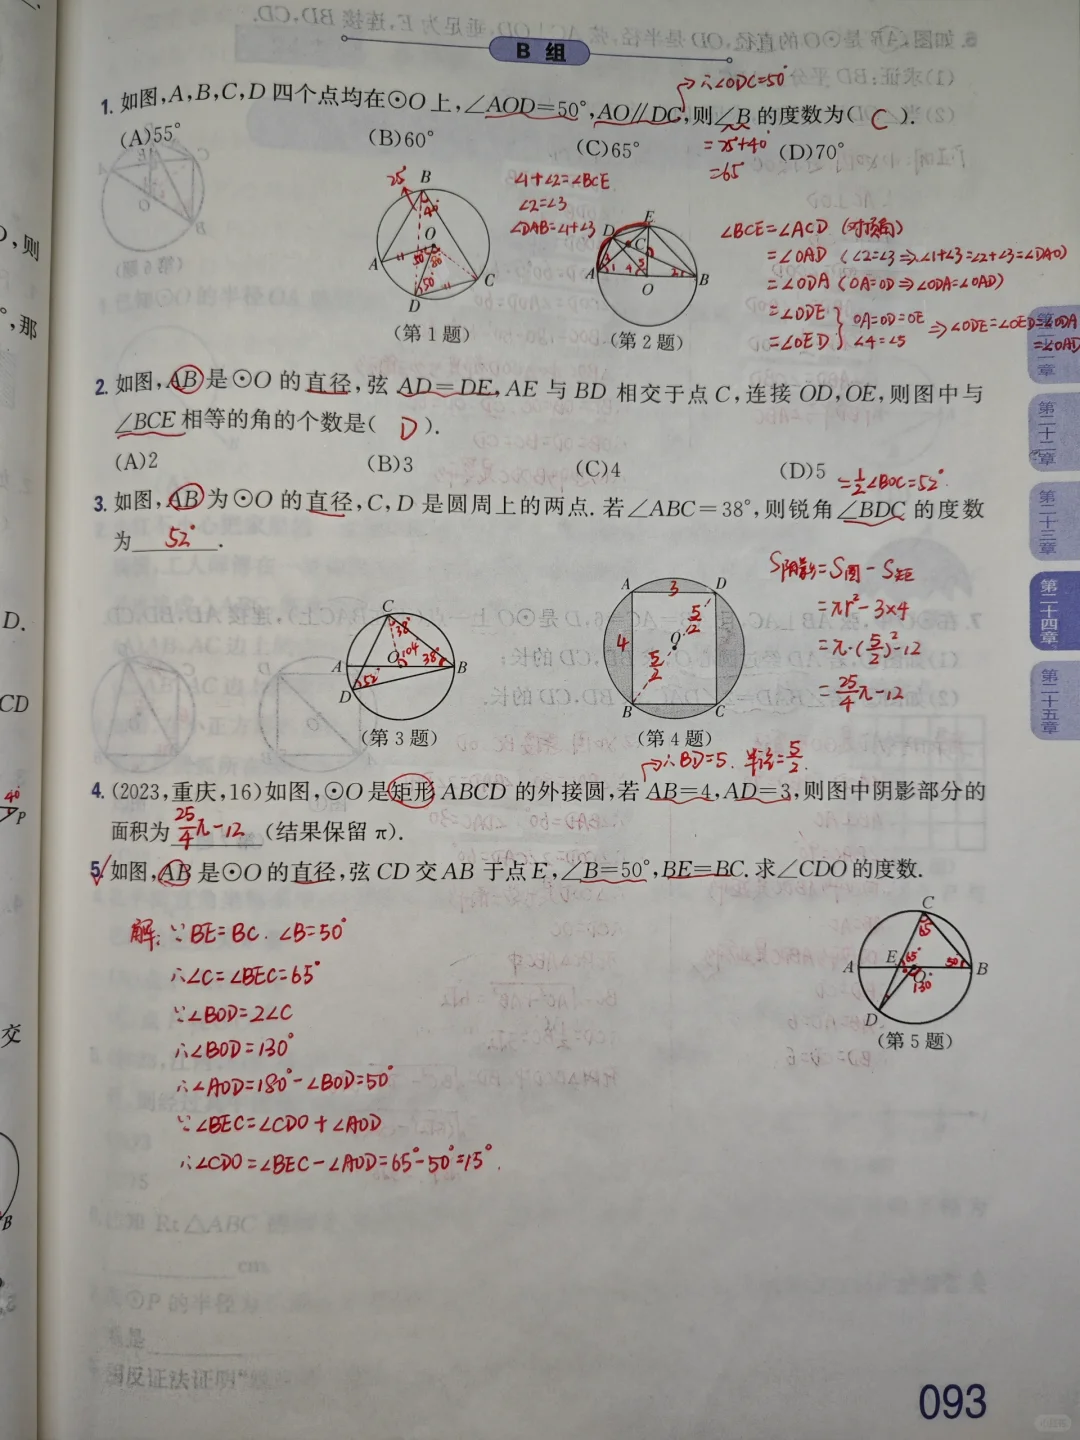 B 组
1. 如图,A,B,C,D 四个点均在⊙O 上,∠AOD=50°,AO∥DC,则∠B 的度数为( C ).
∴∠ODC=50°
(A)55°
(B)60°
(C)65°
(D)70°
=25°+40°
=65°
25°
B
40°
O
A
C
D
50°
(第 1 题)
∠1+∠2=∠BCE
∠2=∠3
∠DAB=∠1+∠3
E
D
C
A
B
O
(第 2 题)
∠BCE=∠ACD (对顶角)
=∠OAD (∠2=∠3⇒∠1+∠3=∠2+∠3=∠DAO)
=∠ODA (OA=OD⇒∠ODA=∠OAD)
=∠ODE } OA=OD=OE ⇒∠ODE=∠OED=∠ODA
=∠OED } ∠4=∠5 =∠OAD
2. 如图,AB 是⊙O 的直径,弦 AD=DE,AE 与 BD 相交于点 C,连接 OD,OE,则图中与
∠BCE 相等的角的个数是( D ).
(A)2
(B)3
(C)4
(D)5
=½∠BOC=52°
3. 如图,AB 为⊙O 的直径,C,D 是圆周上的两点. 若∠ABC=38°,则锐角∠BDC 的度数
为 52° .
C
38°
A
O
104
38°
B
D
52°
(第 3 题)
A
3
D
4
5/2
O
5/2
B
C
(第 4 题)
S阴影=S圆-S矩
=πr²-3×4
=π·(5/2)²-12
=25/4π-12
∴BD=5. 半径=5/2.
4. (2023,重庆,16)如图,⊙O 是矩形 ABCD 的外接圆,若 AB=4,AD=3,则图中阴影部分的
面积为 25/4π-12 (结果保留 π).
5. 如图,AB 是⊙O 的直径,弦 CD 交 AB 于点 E,∠B=50°,BE=BC. 求∠CDO 的度数.
解: ∵BE=BC. ∠B=50°
∴∠C=∠BEC=65°
∵∠BOD=2∠C
∴∠BOD=130°
∴∠AOD=180°-∠BOD=50°
∵∠BEC=∠CDO+∠AOD
∴∠CDO=∠BEC-∠AOD=65°-50°=15°.
C
65
A
E
65°
50°
B
O
130
D
(第 5 题)
第二十二章
第二十三章
第二十四章
第二十五章
093